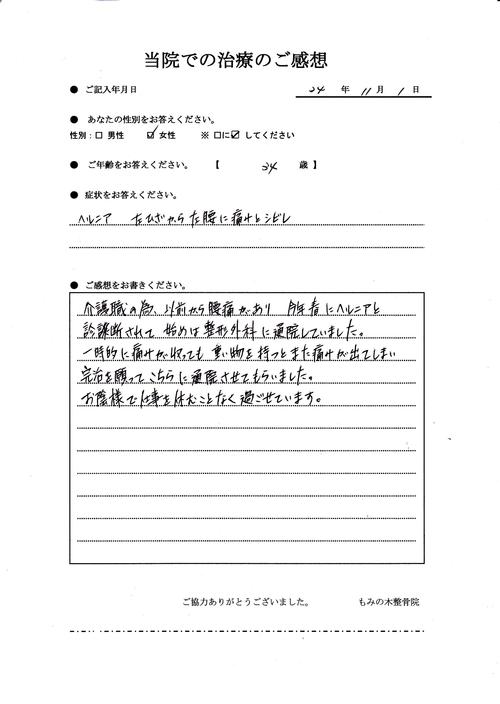 当院での治療のご感想
● ご記入年月日 24 年 11 月 1 日
● あなたの性別をお答えください。
性別：□ 男性 ☑ 女性 ※ □に☑ してください
● ご年齢をお答えください。 【 24 歳 】
● 症状をお答えください。
ヘルニア 左ひざから左腰に痛みとシビレ
● ご感想をお書きください。
介護職の為、以前から腰痛があり 今年春にヘルニアと
診断されて 始めは整形外科に通院していました。
一時的に痛みが収っても 重い物を持つとまた痛みが出てしまい
完治を願ってこちらに通院させてもらいました。
お陰様で仕事を休むことなく過ごせています。
ご協力ありがとうございました。 もみの木整骨院